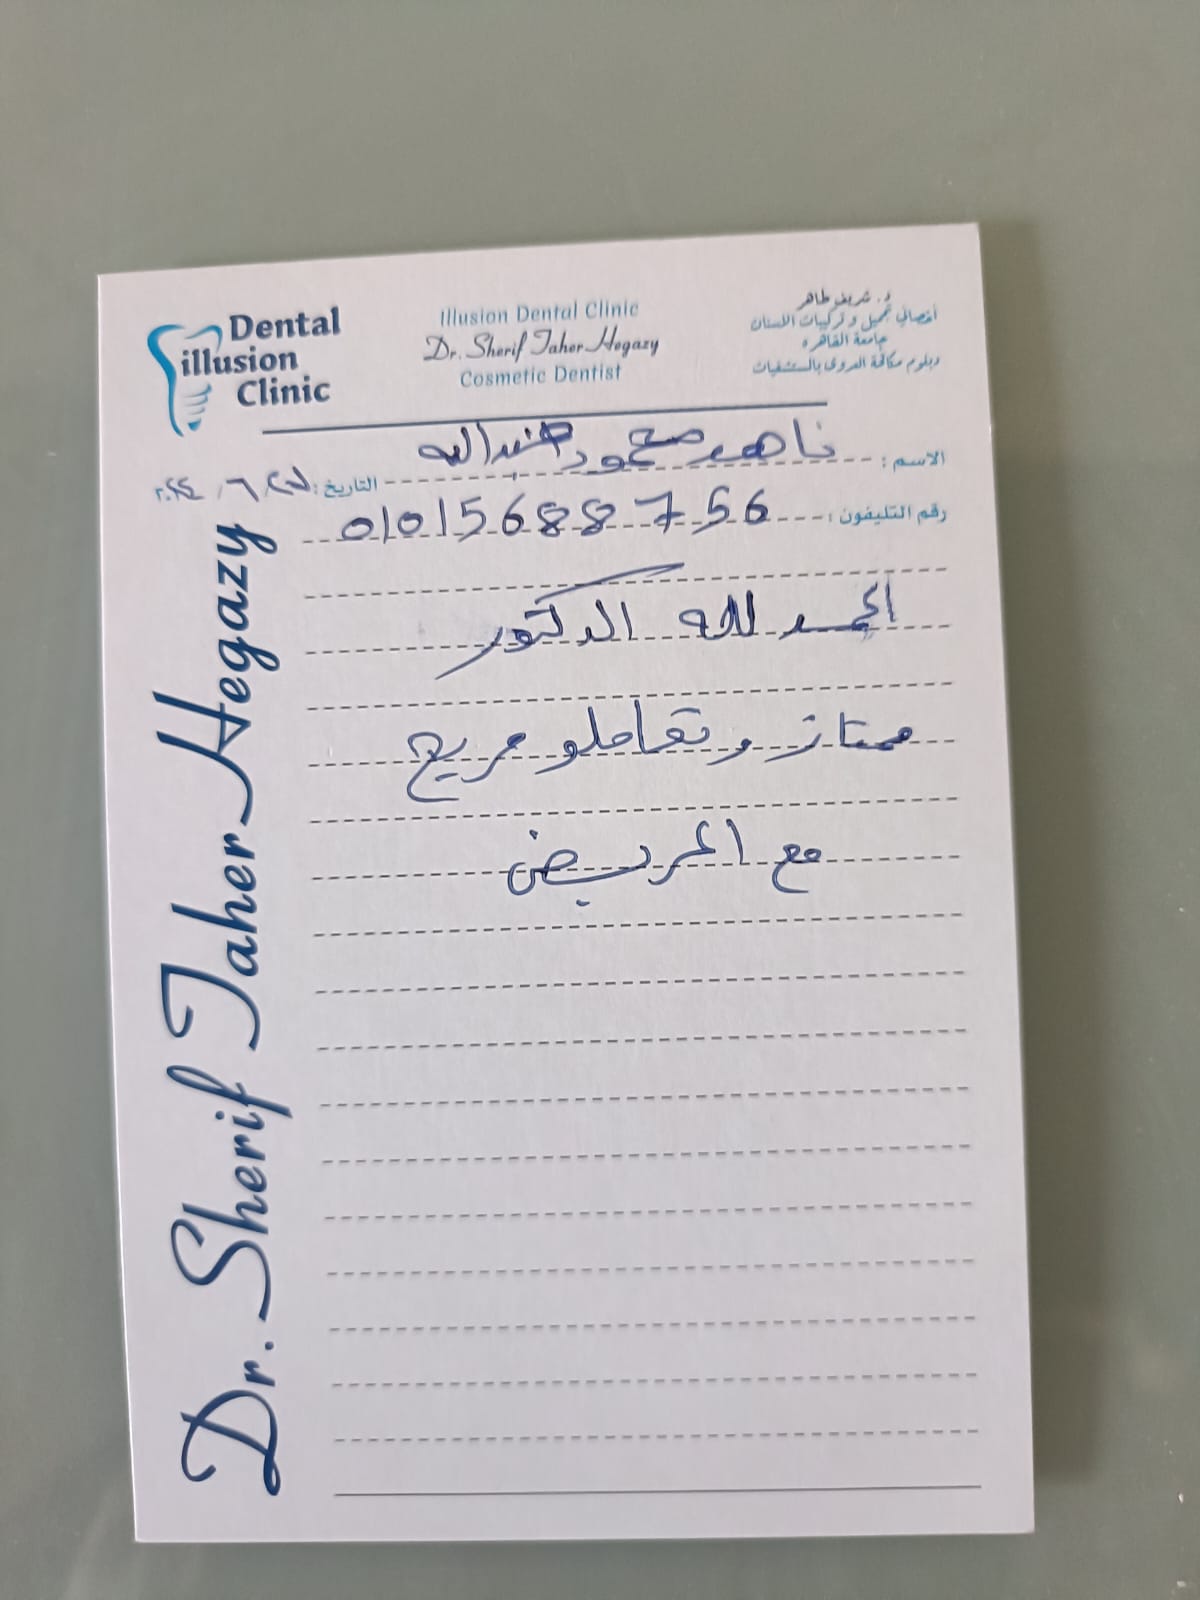 Dental
illusion
Clinic
Illusion Dental Clinic
Dr. Sherif Taher Hegazy
Cosmetic Dentist
د. شريف طاهر
أخصائي تجميل وتركيبات الاسنان
جامعة القاهره
دبلوم مكافحة العدوى بالمستشفيات
الاسم: ناهد محمود
التاريخ: ٢٠٢٤/٦/٢٧
رقم التليفون: 01015688756
الحمد لله الدكتور
ممتاز وتعاملو مريح
مع المريض
Dr. Sherif Taher Hegazy